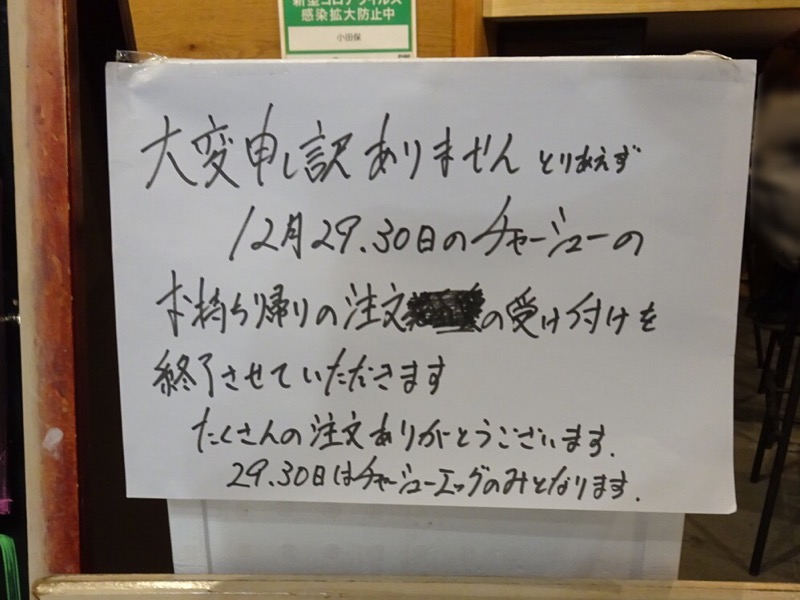 新型コロナウイルス
感染拡大防止中
小田保
大変申し訳ありませんとりあえず
12月29.30日のチャーシューの
お持ち帰りの注文の受け付けを
終了させていただきます
たくさんの注文ありがとうございます.
29.30日はチャーシューエッグのみとなります.